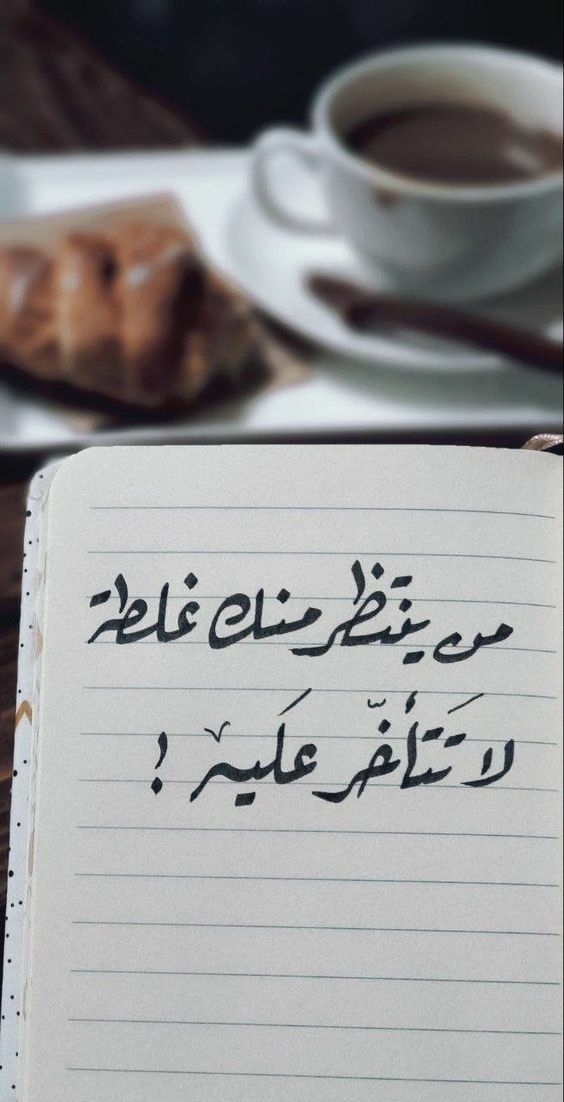 من ينتظر منك غلطة
لا تَتأخّر عَليه !